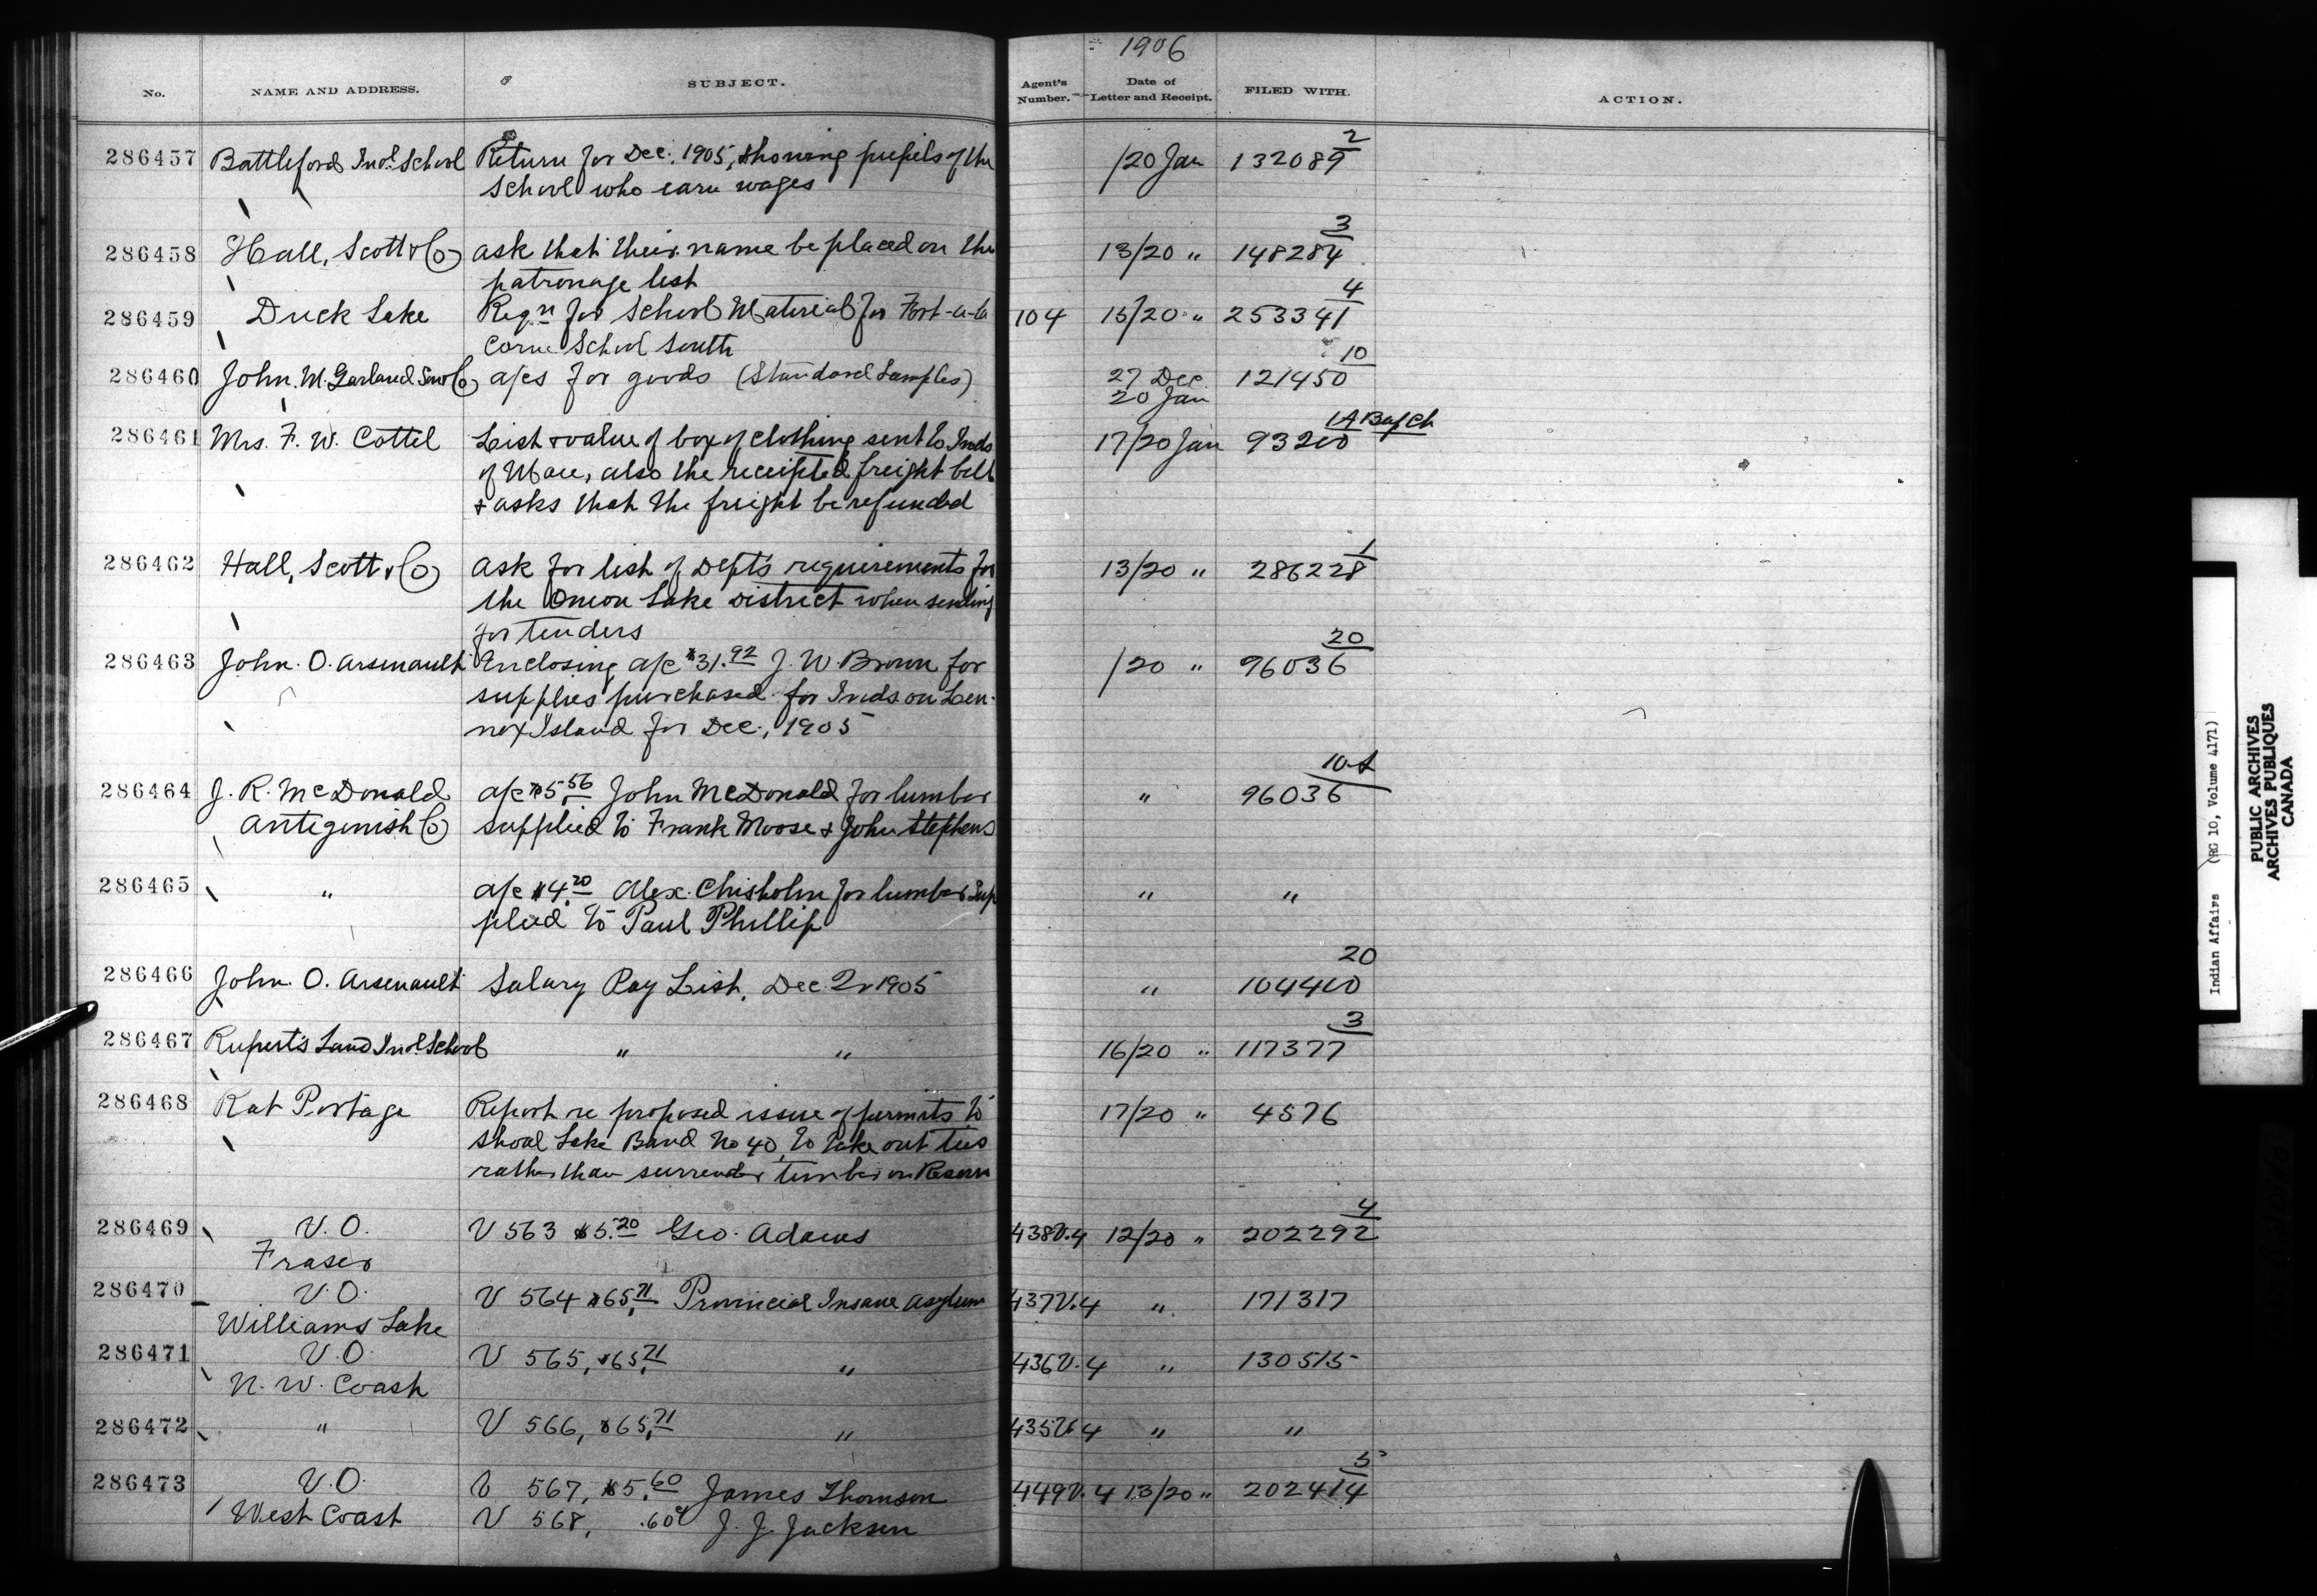 1906
No. NAME AND ADDRESS. SUBJECT. Agent's Number. Date of Letter and Receipt. FILED WITH. ACTION.
2
286457 Battleford Indl. School Return for Dec. 1905, showing pupils of the /20 Jan 132089
school who earn wages
3
286458 Hall, Scott & Co ask that their name be placed on the 13/20 " 148284
patronage list
4
286459 Duck Lake Reqn for School Material for Fort-a-la 104 15/20 " 253341
Corne School South
10
286460 John M. Garland Son & Co a/cs for goods (Standard Samples) 27 Dec 121450
20 Jan
1A
286461 Mrs. F. W. Cottel List & value of box of clothing sent to Inds 17/20 Jan 93200
of also the receipted freight bill
& asks that the freight be refunded
1
286462 Hall, Scott & Co ask for list of Depts requirements for 13/20 " 286228
the Onion Lake District when sending
for tenders
20
286463 John. O. Arsenault Enclosing a/c $31.92 J. W. Brown for /20 " 96036
supplies purchased for Inds on Len-
nox Island for Dec., 1905
10
286464 J. R. McDonald a/c $5.56 John McDonald for lumber " 96036
Antigonish Co supplied to Frank Moose & John Stephens
286465 " a/c $4.20 Alex. Chisholm for lumber sup " "
plied to Paul Phillip
20
286466 John. O. Arsenault Salary Pay List, Dec Qr 1905 " 104400
3
286467 Rupert's Land Indl. School " " 16/20 " 117377
286468 Rat Portage Report re proposed issue of permits to 17/20 " 4576
Shoal Lake Band No 40, to take out ties
rather than surrender timber on Reserve
4
286469 V. O. V 563 $5.20 Geo. Adams 438V.4 12/20 " 202292
Fraser
286470 V. O. V 564 $65.71 Provincial Insane Asylum 437V.4 " 171317
Williams Lake
286471 V. O. V 565, $65.71 " 436V.4 " 130515
N. W. Coast
286472 " V 566, $65.71 " 435V.4 " "
5
286473 V. O. V 567, $5.60 James Thomson 449V.4 13/20 " 202414
West Coast V 568, .60c J. J. Jackson
Indian Affairs (RG 10, Volume 4171)
PUBLIC ARCHIVES
ARCHIVES PUBLIQUES
CANADA